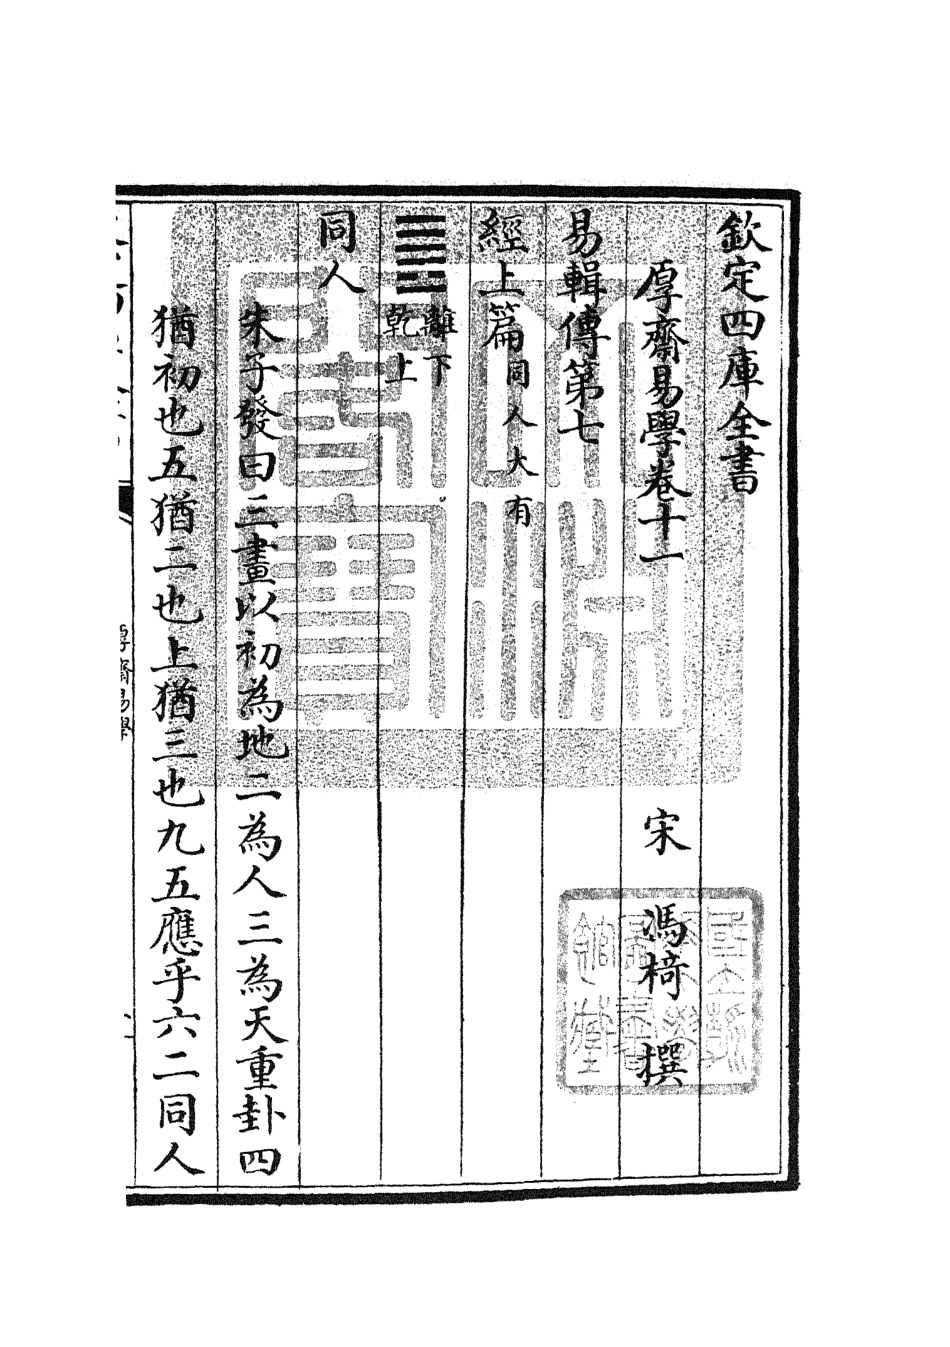 欽定四庫全書
厚齋易學卷十一
宋 馮椅 撰
易輯傳第七
經上篇同人大有
離下
乾上
同人
朱子發曰三畫以初為地二為人三為天重卦四
猶初也五猶二也上猶三也九五應乎六二同人
厚齋易學